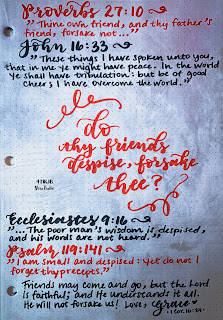 Proverbs 27:10
"Thine own friend, and thy father's
friend, forsake not..."
John 16:33
"These things I have spoken unto you,
that in me ye might have peace. In the world
ye shall have tribulation: but be of good
cheer; I have overcome the world."
do
thy friends
despise, forsake
thee?
Ecclesiastes 9:16
"...The poor man's wisdom is despised,
and his words are not heard."
Psalm 119:141
"I am small and despised: yet do not I
forget thy precepts."
Friends may come and go, but the Lord
is faithful; and He understands it all.
He will not forsake us! Love, Grace